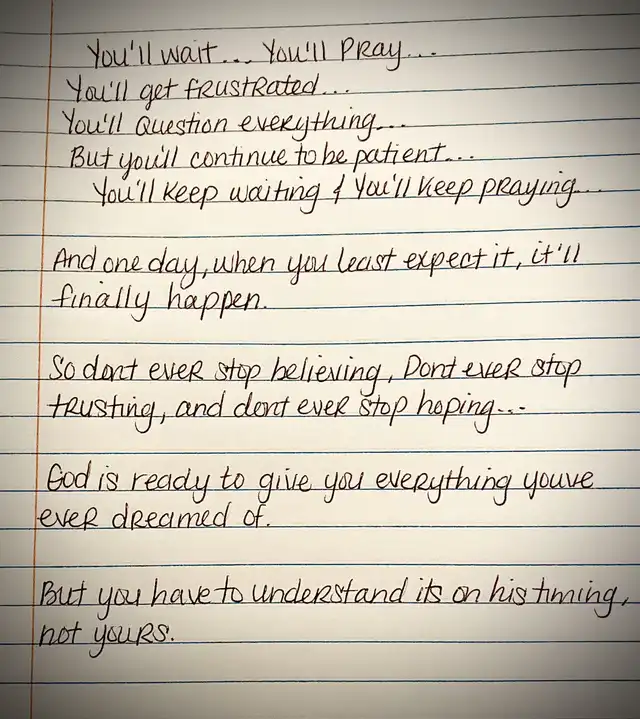 You'll wait... You'll Pray...
You'll get frustrated...
You'll Question everything...
But you'll continue to be patient...
You'll keep waiting & You'll keep praying...
And one day, when you least expect it, it'll
finally happen.
So dont ever stop believing, Dont ever stop
trusting, and dont ever stop hoping...
God is ready to give you everything youve
ever dreamed of.
But you have to understand its on his timing,
not yours.